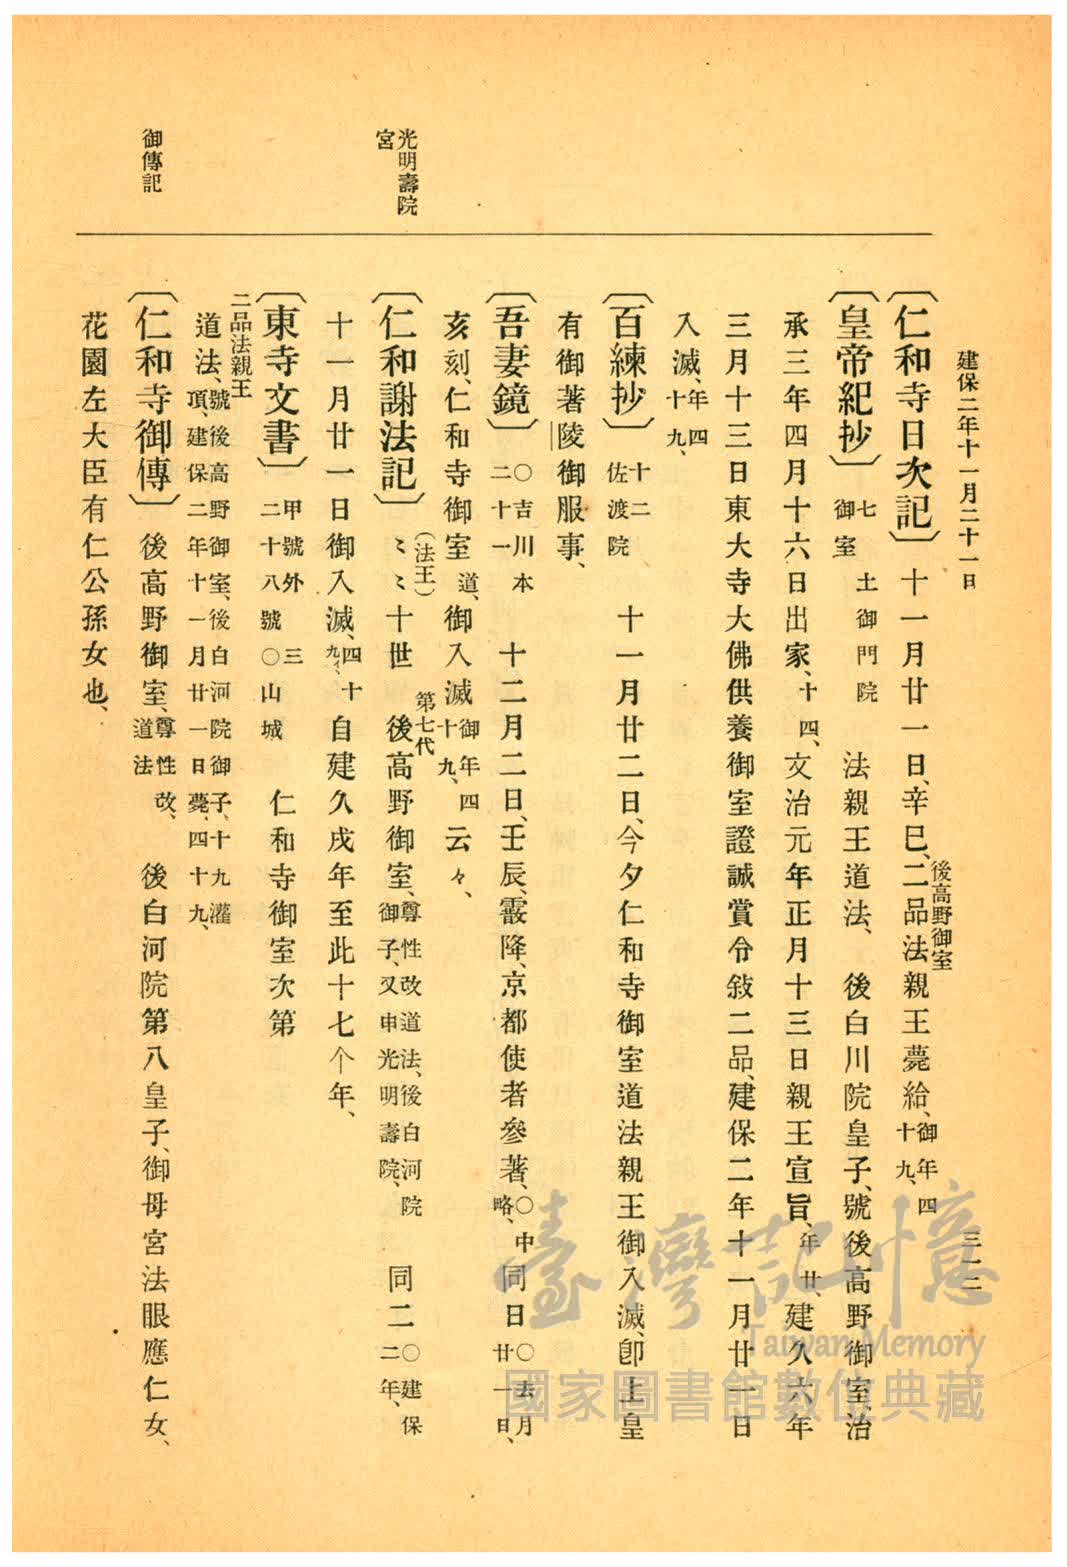 建保二年十一月二十一日
三一二
光明壽院
宮
御傳記
〔仁和寺日次記〕十一月廿一日、辛巳、二品法親王薨給、御年四十九、
後高野御室
〔皇帝紀抄〕七土御門院御室 法親王道法、後白川院皇子、號後高野御室、治
承三年四月十六日出家、十四、文治元年正月十三日親王宣旨、年廿、建久六年
三月十三日東大寺大佛供養御室證誠賞令敍二品、建保二年十一月廿一日
入滅、年四十九、
〔百練抄〕十二佐渡院 十一月廿二日、今夕仁和寺御室道法親王御入滅、卽上皇
有御著陵御服事、
〔吾妻鏡〕〇吉川本二十一 十二月二日、壬辰、霰降、京都使者參著、〇中略、同日〇去月廿一日、
亥刻、仁和寺御室道、御入滅御年四十九、云々、
(法王)
〔仁和謝法記〕〻〻十世 後高野御室、尊性改道法、後白河院御子、又申光明壽院、 同二〇建保二年、
第七代
十一月廿一日御入滅、四十九イ、自建久戌年至此十七个年、
〔東寺文書〕甲號外三二十八號〇山城 仁和寺御室次第
二品法親王
道法、號後高野御室、後白河院御子、十九灌頂、建保二年十一月廿一日薨、四十九、
〔仁和寺御傳〕後高野御室、尊性改道法、 後白河院第八皇子、御母宮法眼應仁女、
花園左大臣有仁公孫女也、
臺灣記憶
Taiwan Memory
國家圖書館數位典藏